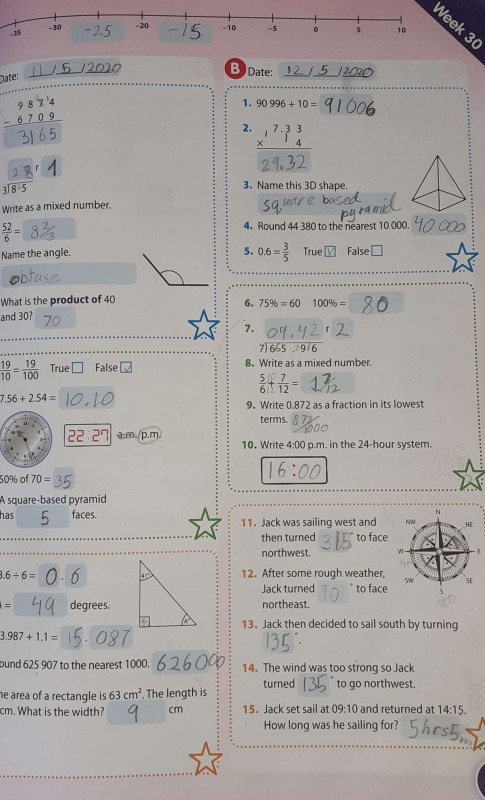 -35 -30 -25 -20 -15 -10 -5 0 5 10
Week 30
Date: 11/5/2020
9 8 7 4
- 6 7 0 9
3165
28 r 1
3)8 5
Write as a mixed number.
52/6 = 8 2/3
Name the angle.
obtuse
What is the product of 40
and 30? 70
19/10 = 19/100 True False ✓
7.56 + 2.54 = 10.10
22:27 a.m./p.m.
50% of 70 = 35
A square-based pyramid
has 5 faces.
3.6 ÷ 6 = 0.6
= 49 degrees.
41°
3.987 + 1.1 = 15.087
ound 625 907 to the nearest 1000. 626000
he area of a rectangle is 63 cm². The length is
cm. What is the width? 9 cm
B Date: 12/5/2020
1. 90 996 + 10 = 91006
2. 1 7.3 3
× 1 4
29.32
3. Name this 3D shape.
square based
pyramid
4. Round 44 380 to the nearest 10 000. 40 000
5. 0.6 = 3/5 True ✓ False
6. 75% = 60 100% = 80
7. 09.42 r 2
7)665.29/6
8. Write as a mixed number.
5/6 + 7/12 = 17/12
9. Write 0.872 as a fraction in its lowest
terms. 872/1000
10. Write 4:00 p.m. in the 24-hour system.
16:00
11. Jack was sailing west and
then turned 315° to face
northwest.
N
NW NE
W E
SW SE
S
180
12. After some rough weather,
Jack turned 90° to face
northeast.
13. Jack then decided to sail south by turning
135°.
14. The wind was too strong so Jack
turned 135° to go northwest.
15. Jack set sail at 09:10 and returned at 14:15.
How long was he sailing for? 5hrs5m